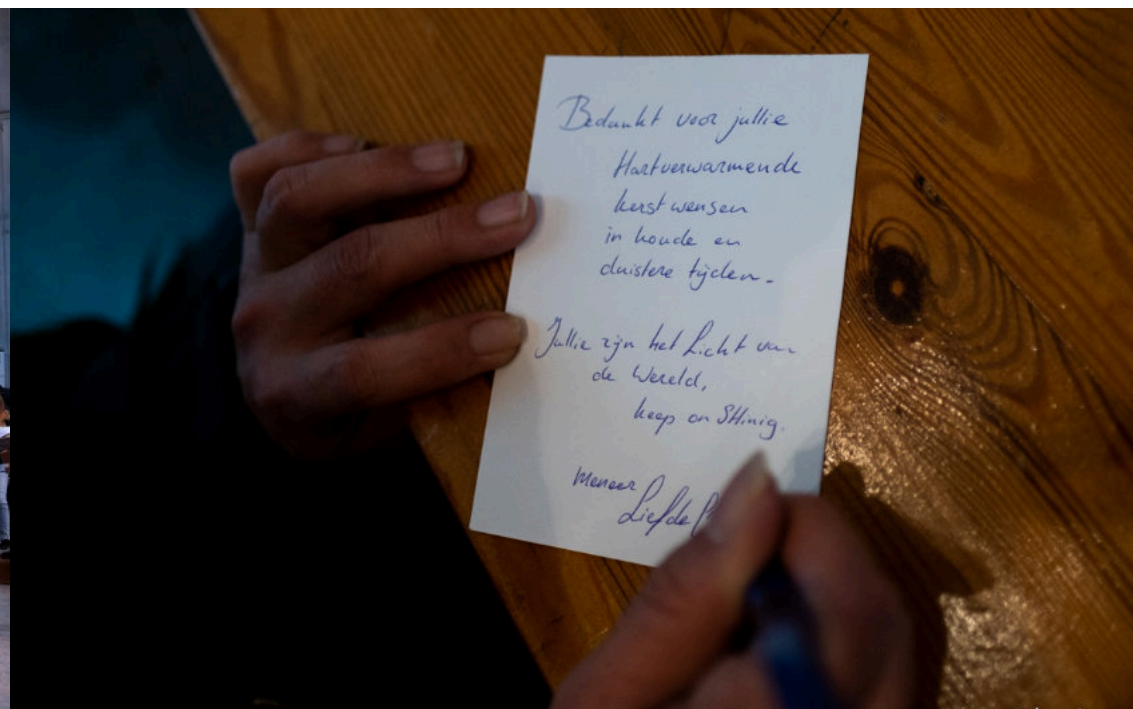 Bedankt voor jullie
Hartverwarmende
kerstwensen
in koude en
duistere tijden.
Jullie zijn het Licht van
de Wereld,
keep on SHinig.
Meneer
Liefde